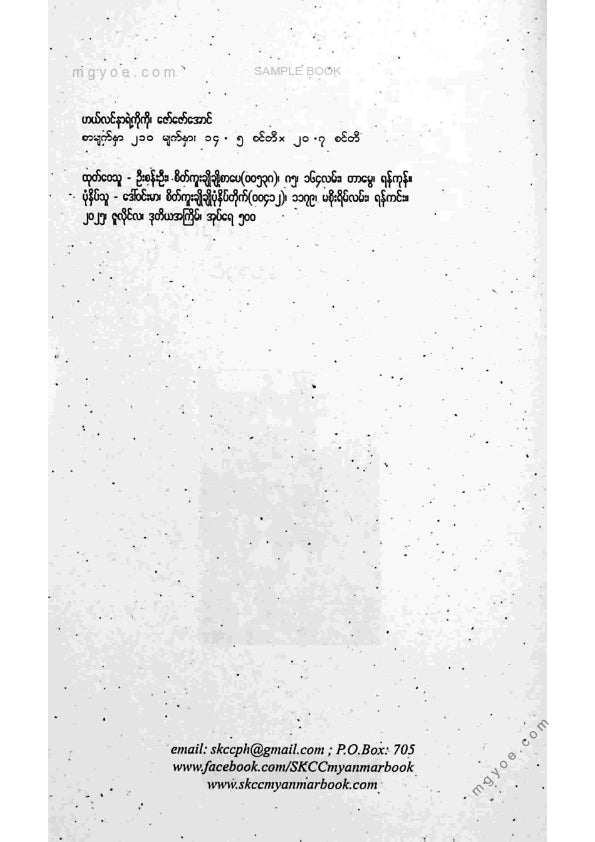 mgyoe.com
SAMPLE BOOK
ဟယ်လင်နာရဲ့ကိုကို၊ ဇော်ဇော်အောင်
စာမျက်နှာ ၂၁၀ မျက်နှား ၁၄.၅ စင်တီ× ၂၀.၇ စင်တီ
ထုတ်ဝေသူ - ဦးစန်းဦး၊ စိတ်ကူးချိုချိုစာပေ(၀၀၅၃၈)၊ ဂ၅၊ ၁၆၄လမ်း၊ တာမွေ၊ ရန်ကုန်။
ပုံနှိပ်သူ - ဒေါ်ဝင်းမာ၊ စိတ်ကူးချိုချိုပုံနှိပ်တိုက်(၀၀၄၁၂)၊ ၁၁၇၉၊ မစိုးရိမ်လမ်း၊ ရန်ကင်း။
၂၀၂၅၊ ဇူလိုင်လ၊ ဒုတိယအကြိမ်၊ အုပ်ရေ ၅၀၀
email: skccph@gmail.com ; P.O.Box: 705
www.facebook.com/SKCCmyanmarbook
www.skccmyanmarbook.com
mgyoe.com